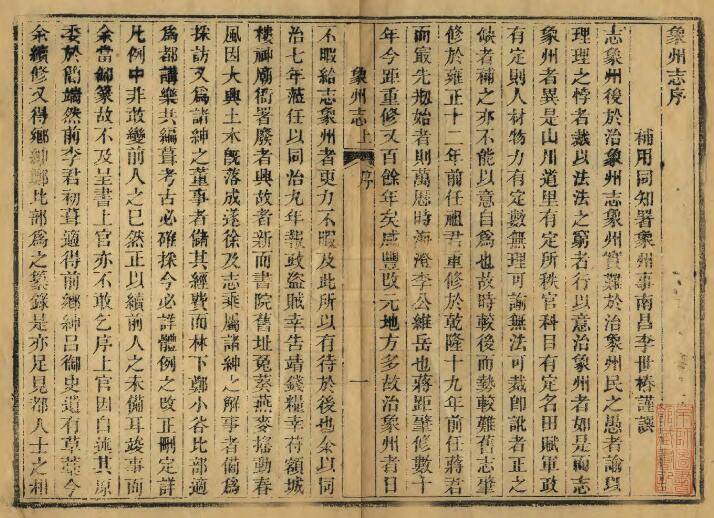 象州志序
補用同知署象州事南昌李世椿謹譔
志象州後於治象州志象州實難於治象州民之愚者諭以
理理之悖者裁以法法之窮者行以意治象州者如是而志
象州者異是山川道里有定所秩官科目有定名田賦軍政
有定則人材物力有定數無理可諭無法可裁卽訛者正之
缺者補之亦不能以意自爲也故時較後而勢較難舊志肇
修於雍正十二年前任祖君重修於乾隆十九年前任蔣君
而最先剏始者則萬曆時海澄李公維岳也蔣距肇修數十
年今距重修又百餘年矣咸豐改元地方多故治象州者日
象州志上
序
一
不暇給志象州者更力不暇及此所以有待於後也余以同
治七年蒞任以同治九年報政盜賊幸告靖錢糧幸符額城
樓神廟衙署廢者興故者新而書院舊址兔葵燕麥搖動春
風因大興土木旣落成遂徐及志乘屬諸紳之解事者備爲
採訪又爲諸紳之董事者儲其經費而林下鄭小谷比部適
爲都講樂共編葺考古必確採今必詳體例之改正刪定詳
凡例中非敢變前人之已然正以續前人之未備耳竣事而
余當卸篆故不及呈書上官亦不敢乞序上官因自述其原
委於簡端然前李君初葺適得前鄉紳呂御史遺有草藁今
余續修又得鄉紳鄭比部爲之纂錄是亦足見都人士之相